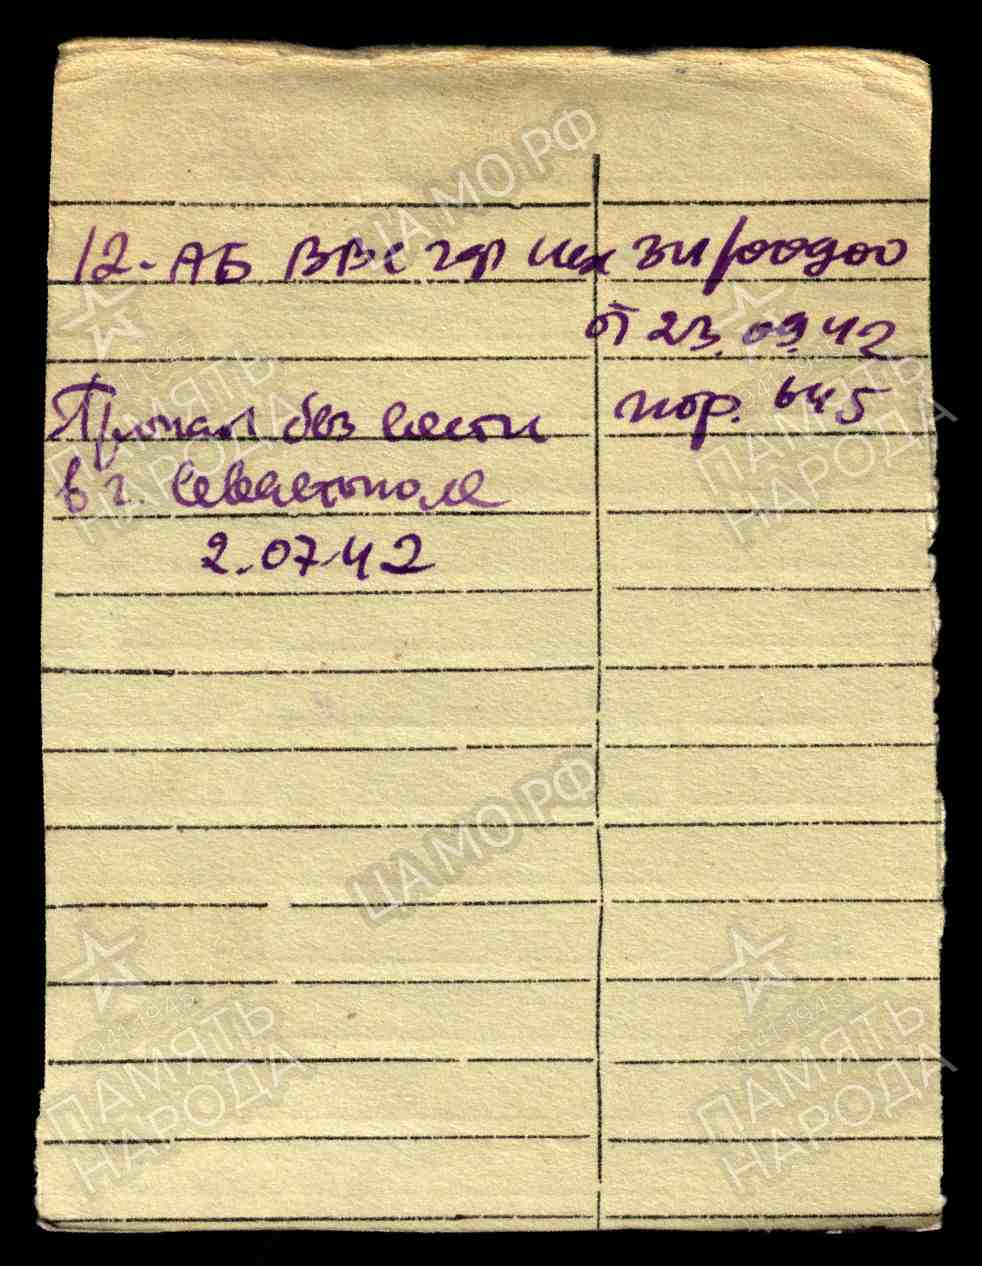 12-АБ ВВС ЧФ
от 23.09.42
пор. 645
Пропал без вести
в г. Севастополе
2.07.42
ЦАМО.РФ
1941-1945
ПАМЯТЬ
НАРОДА
1941-1945
ПАМЯТЬ
НАРОДА
ЦАМО.РФ
1941-1945
ПАМЯТЬ
НАРОДА
1941-1945
ПАМЯТЬ
НАРОДА